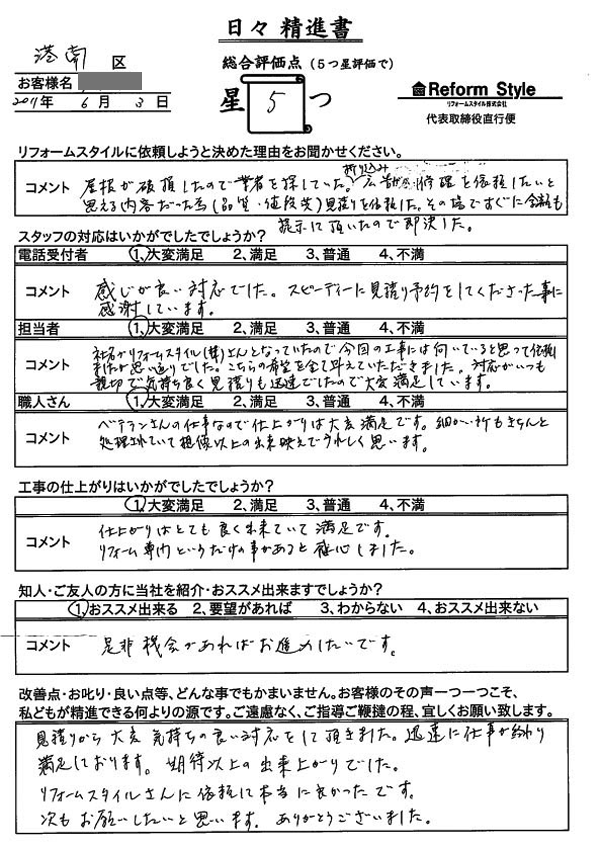 日々精進書
港南 区
お客様名
2011年 6月 3日
総合評価点(5つ星評価で)
星 5 つ
Reform Style
リフォームスタイル株式会社
代表取締役直行便
リフォームスタイルに依頼しようと決めた理由をお聞かせください。
コメント
折り込み
屋根が破損したので業者を探していた。広告が修理を依頼したいと
思える内容だった為(品質・値段共)見積りを依頼した。その場ですぐに金額も
提示して頂いたので即決した。
スタッフの対応はいかがでしたでしょうか?
電話受付者 1、大変満足 2、満足 3、普通 4、不満
コメント
感じが良い対応でした。スピーディーに見積り予約をしてくださった事に
感謝しています。
担当者 1、大変満足 2、満足 3、普通 4、不満
コメント
社名がリフォームスタイル(株)さんとなっていたので今回の工事には向いていると思って依頼
しましたが思い通りでした。こちらの希望を全て叶えていただきました。対応がいつも
親切で気持ち良く見積りも迅速でしたので大変満足しています。
職人さん 1、大変満足 2、満足 3、普通 4、不満
コメント
ベテランさんの仕事なので仕上がりは大変満足です。細かい所もきちんと
処理されていて想像以上の出来映えでうれしく思います。
工事の仕上がりはいかがでしたでしょうか?
1、大変満足 2、満足 3、普通 4、不満
コメント
仕上がりはとても良く出来ていて満足です。
リフォーム専門というだけの事があると感心しました。
知人・ご友人の方に当社を紹介・おススメ出来ますでしょうか?
1、おススメ出来る 2、要望があれば 3、わからない 4、おススメ出来ない
コメント
是非機会があればお進めしたいです。
改善点・お叱り・良い点等、どんな事でもかまいません。お客様のその声一つ一つこそ、
私どもが精進できる何よりの源です。ご遠慮なく、ご指導ご鞭撻の程、宜しくお願い致します。
見積りから大変気持ちの良い対応をして頂きました。迅速に仕事が終わり
満足しております。期待以上の出来上がりでした。
リフォームスタイルさんに依頼して本当に良かったです。
次もお願いしたいと思います。ありがとうございました。